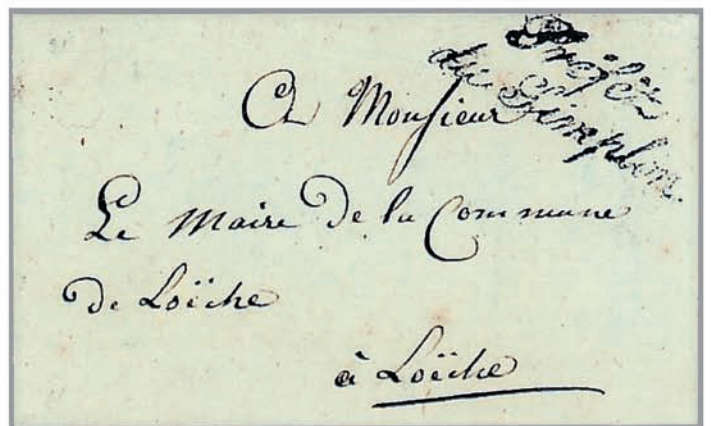 Préfet
du Simplon.
A Monsieur
Le Maire De la Commune
de Loëche
à Loëche